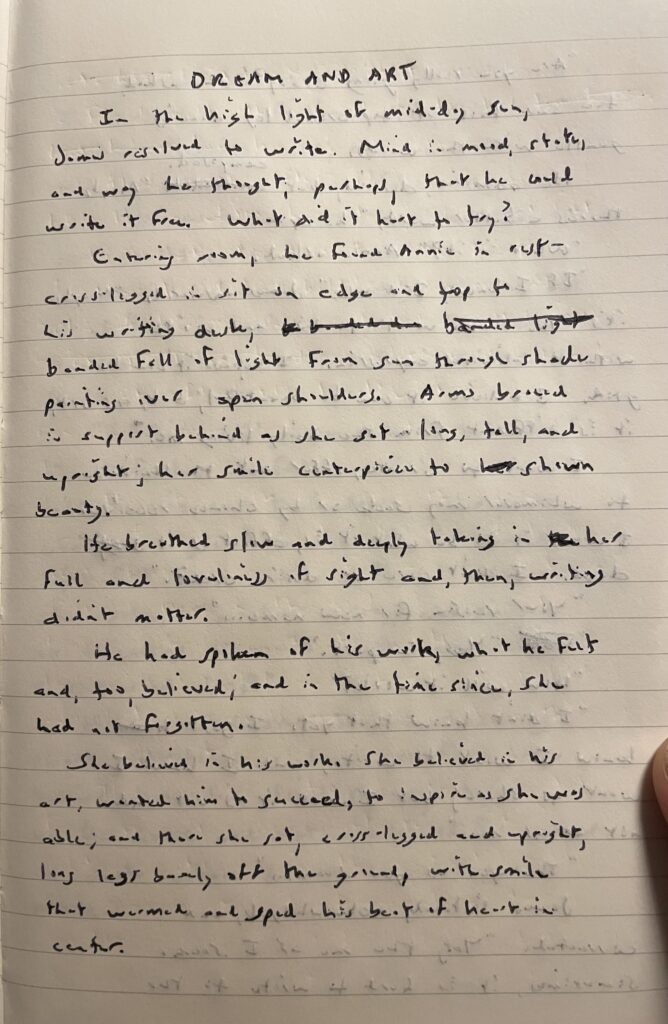 DREAM AND ART
In the high light of mid-day sun,
James resolved to write. Mind in mood, state,
and way he thought, perhaps, that he could
write it free. What did it hurt to try?
Entering room, he found Annie in rest-
cross-legged in sit on edge and top to
his writing desk, banded light
banded fall of light from sun through shades
painting over open shoulders. Arms braced
in support behind as she sat long, tall, and
upright; her smile centerpiece to shown
beauty.
He breathed slow and deeply taking in her
full and loveliness of sight and, then, writing
didn't matter.
He had spoken of his work, what he felt
and, too, believed; and in the time since, she
had not forgotten.
She believed in his work. She believed in his
art, wanted him to succeed, to inspire as she was
able; and there she sat, cross-legged and upright,
long legs barely off the ground, with smile
that warmed and sped his beat of heart in
center.